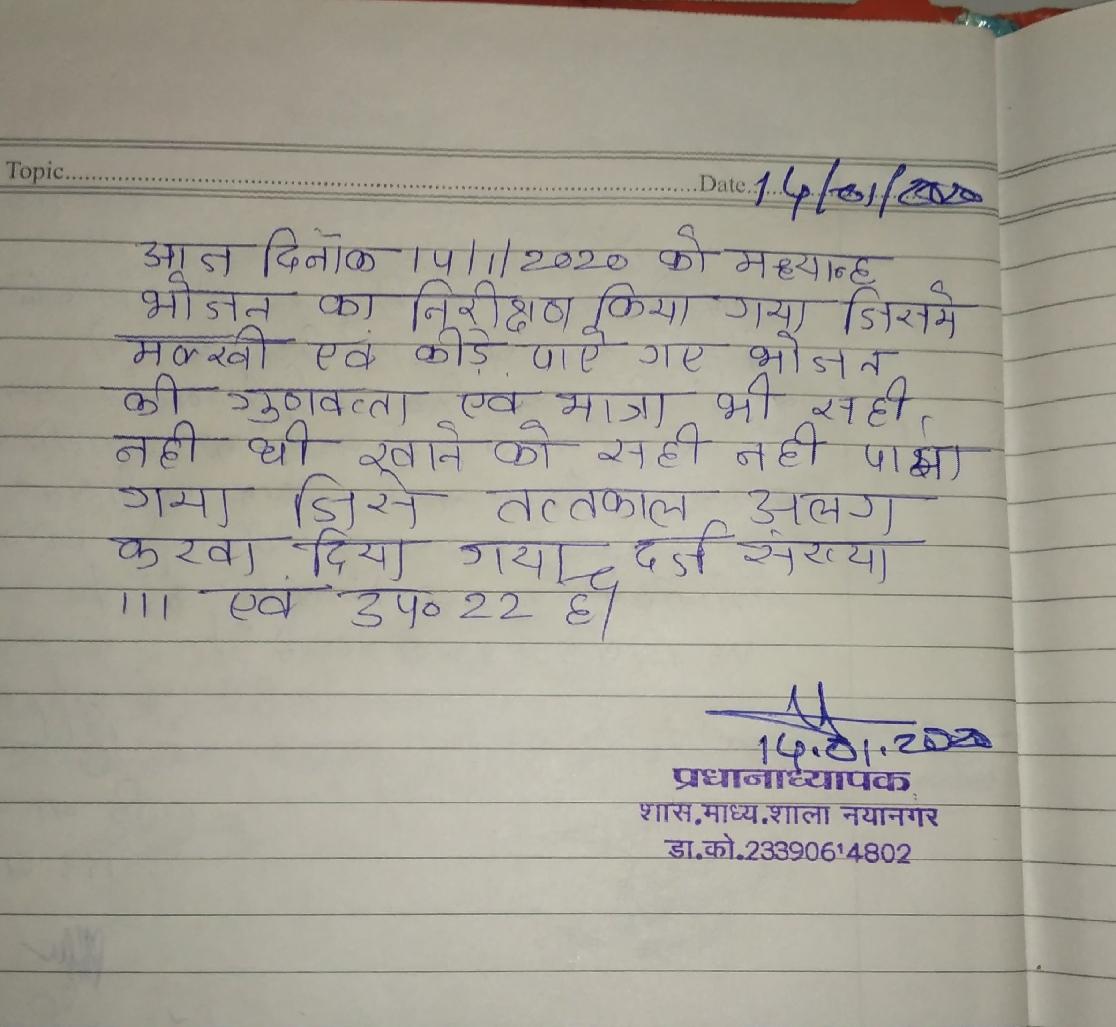 Topic.......... Date.. 14/01/2020
आज दिनाँक 14/1/2020 को मध्यान्ह
भोजन का निरीक्षण किया गया जिसमे
मक्खी एवं कीड़े पाऐ गए भोजन
की गुणवत्ता एव मात्रा भी सही
नही थी खाने को सही नही पाया
गया जिसे तत्तकाल अलग
करवा दिया गया दर्ज संख्या
111 एवं उप० 22 है
14.01.2020
प्रधानाध्यापक
शास.माध्य.शाला नयानगर
डा.को.23390614802